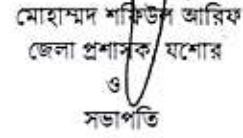 মোহাম্মদ শফিউল আরিফ
জেলা প্রশাসক, যশোর
ও
সভাপতি